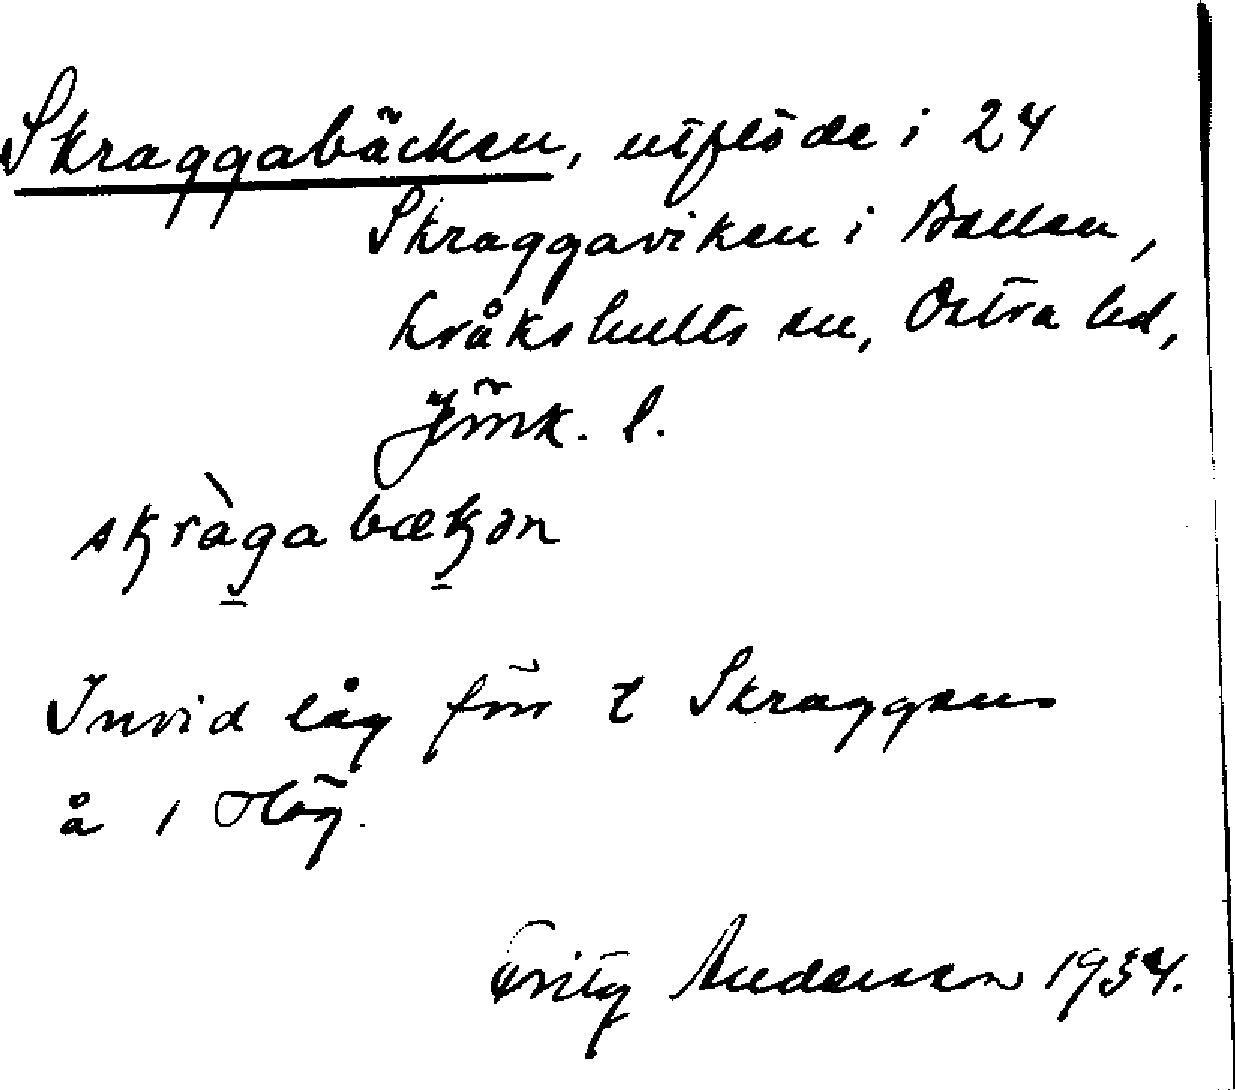 Skraggabäcken, utflöde i 24
Skraggaviken i Bellen,
Kråkshults sn, Östra hd,
Jönk. l.
skràgabækən
Invid låg förr t Skraggens
å, Hög.
Fritz Andersson 1934.